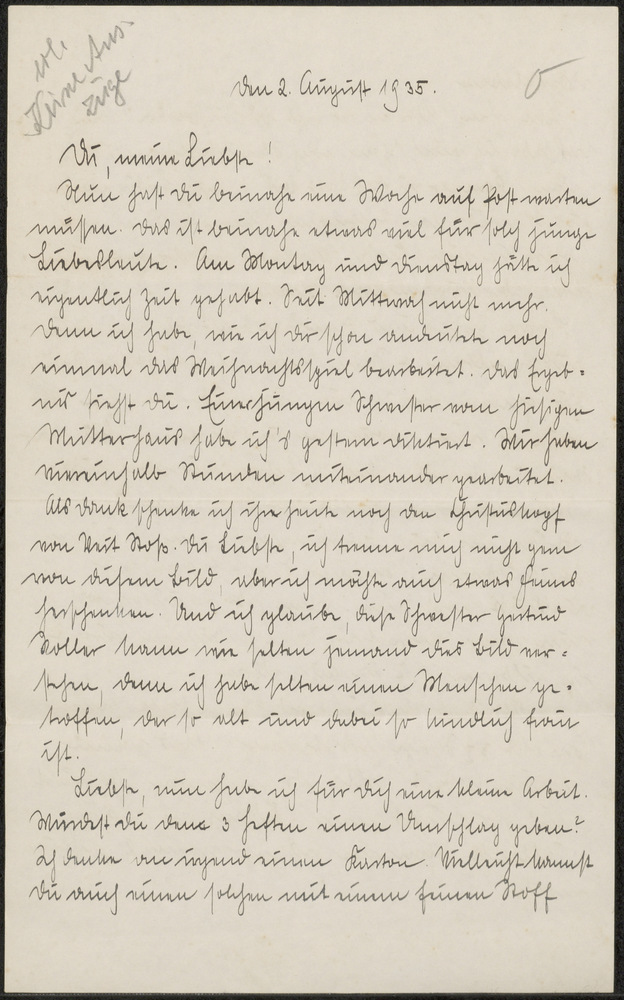 Keine Aus-
züge
den 2. August 1935.
Du, meine Liebste!
Nun hast Du beinahe eine Woche auf Post warten
müssen. Das ist beinahe etwas viel für solch junge
Liebesleute. Am Montag und Dienstag hätte ich
eigentlich Zeit gehabt. Seit Mittwoch nicht mehr.
Denn ich habe, wie ich Dir schon andeutete noch
einmal das Weihnachtsspiel bearbeitet. Das Ergeb=
nis siehst Du. Einer jungen Schwester vom hiesigen
Mutterhaus habe ich's gestern diktiert. Wir haben
viereinhalb Stunden miteinander gearbeitet.
Als Dank schenke ich ihr heute noch den Christuskopf
von Veit Stoß. Du Liebste, ich trenne mich nicht gern
von diesem Bild, aber ich möchte auch etwas Feines
herschenken. Und ich glaube, diese Schwester Gertrud
Koller kann wie selten jemand dies Bild ver=
stehen, denn ich habe selten einen Menschen ge=
troffen, der so alt und dabei so kindlich fein
ist.
Liebste, nun habe ich für Dich eine kleine Arbeit.
Würdest Du den 3 Heften einen Umschlag geben?
Ich denke an irgend einen Karton. Vielleicht kannst
Du auch einen solchen mit einem feinen Stoff